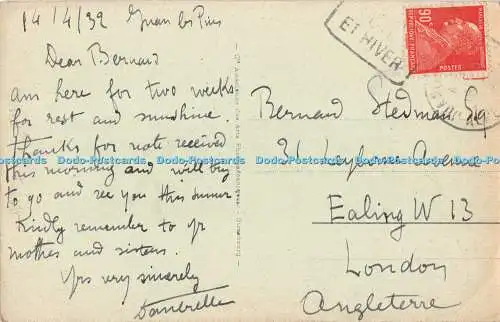 14/4/32 Juan les Pins
Dear Bernard
am here for two weeks
for rest and sunshine.
Thanks for note received
this morning and will try
to go and see you this summer
Kindly remember to yr
mother and sisters.
Yrs very sincerely
Bernard Stedman Esq
31 Leyborne Avenue
Ealing W 13
London
Angleterre
ET HIVER
90c
POSTES
REPUBLIQUE FRANCAISE
Dodo Postcards Dodo Postcards Dodo Postcards Dodo Postcards Dodo Postcards